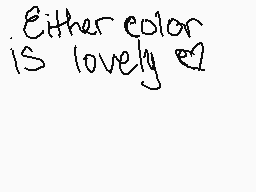 Either color
is lovely ♡